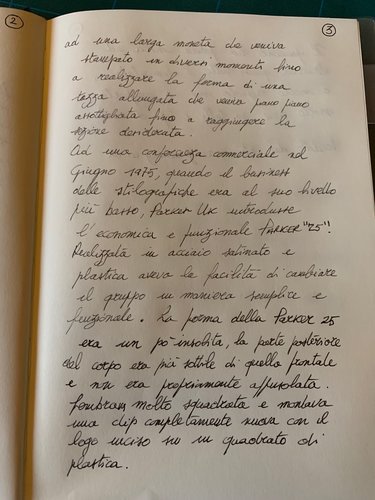 2
3
ad una larga moneta che veniva
stampato in diversi momenti fino
a realizzare la forma di una
tazza allungata che venia piano piano
assottigliata fino a raggiungere la
sezione desiderata.
Ad una conferenza commerciale nel
Giugno 1975, quando il business
delle stilografiche era al suo livello
più basso, Parker UK introdusse
l'economica e funzionale PARKER "25"!
Realizzata in acciaio satinato e
plastica aveva la facilità di cambiare
il gruppo in maniera semplice e
funzionale. La forma della PARKER 25
era un po' insolita, la parte posteriore
del corpo era più sottile di quella frontale
e non era propriamente affusolata.
Sembrava molto squadrata e montava
una clip completamente nuova con il
logo inciso su un quadrato di
plastica.